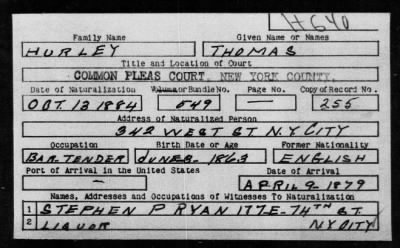 H640
Family Name Given Name or Names
HURLEY THOMAS
Title and Location of Court
COMMON PLEAS COURT, NEW YORK COUNTY.
Date of Naturalization Volume or Bundle No. Page No. Copy of Record No.
OCT. 13 1884 549 — 255
Address of Naturalized Person
342 WEST ST N.Y. CITY
Occupation Birth Date or Age Former Nationality
BARTENDER JUNE 8. 1863 ENGLISH
Port of Arrival in the United States Date of Arrival
— APRIL 9 1879
Names, Addresses and Occupations of Witnesses To Naturalization
1 STEPHEN P RYAN 177 E-74TH ST.
2 LIQUOR NY CITY